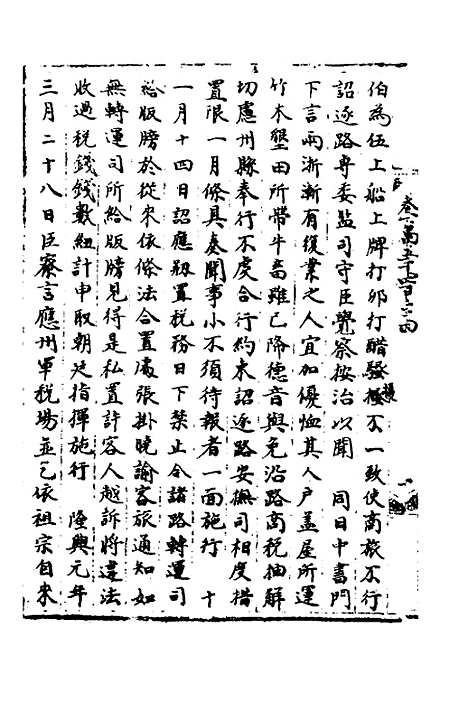 卷一萬五千四百二十四
伯為伍上船上牌打卯打醋發極不一致使商旅不行
詔逐路專委監司守臣覺察按治以聞　同日中書門
下言兩浙漸有復業之人宜加優恤其人戶蓋屋所運
竹木墾田所帶牛畜雖已降德音與免沿路商稅抽解
切慮州縣奉行不虔合行約束詔逐路安撫司相度措
置限一月條具奏聞事小不須待報者一面施行　十
一月十四日詔應剏置稅務日下禁止令諸路轉運司
給版牓於從來依條法合置處張掛曉諭客旅通知如
無轉運司所給版牓見得是私置許客人越訴將違法
收過稅錢錢數紐計申取朝廷指揮施行　隆興元年
三月二十八日臣寮言應州軍稅場並乞依祖宗自來